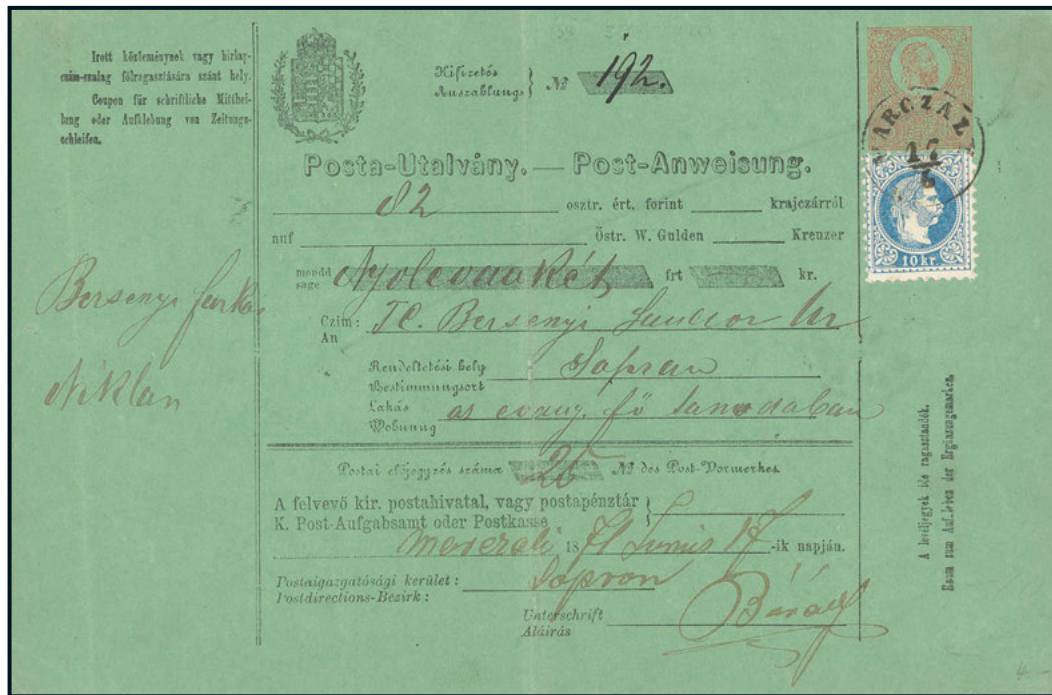 Irott közleménynek vagy hirlap-
czim-szalag fölragasztására szánt hely.
Coupon für schriftliche Mitthei-
lung oder Aufklebung von Zeitungs-
schleifen.
Kifizetés
Auszahlungs } № 192.
Posta-Utalvány. — Post-Anweisung.
82 osztr. ért. forint krajczárról
auf Östr. W. Gulden Kreuzer
mondd
sage Nyolcvankét frt kr.
Czim:
An TC. Bersenyi Sandor Ur
Rendeltetési hely
Bestimmungsort Sopron
Lakás
Wohnung as evang. fö tanodaban
Postai előjegyzés száma 26 № des Post-Vormerkes.
A felvevő kir. postahivatal, vagy postapénztár
K. Post-Aufgabsamt oder Postkasse }
Marczali 1871 Junius 17 -ik napján.
Postaigazgatósági kerület:
Postdirections-Bezirk: Sopron
Unterschrift
Aláirás
Bersenyi Farkas
Niklan
MARCZALI
17
6
10 kr.
A levéljegyek ide ragasztandók.
Raum zum Aufkleben der Ergänzungsmarken.